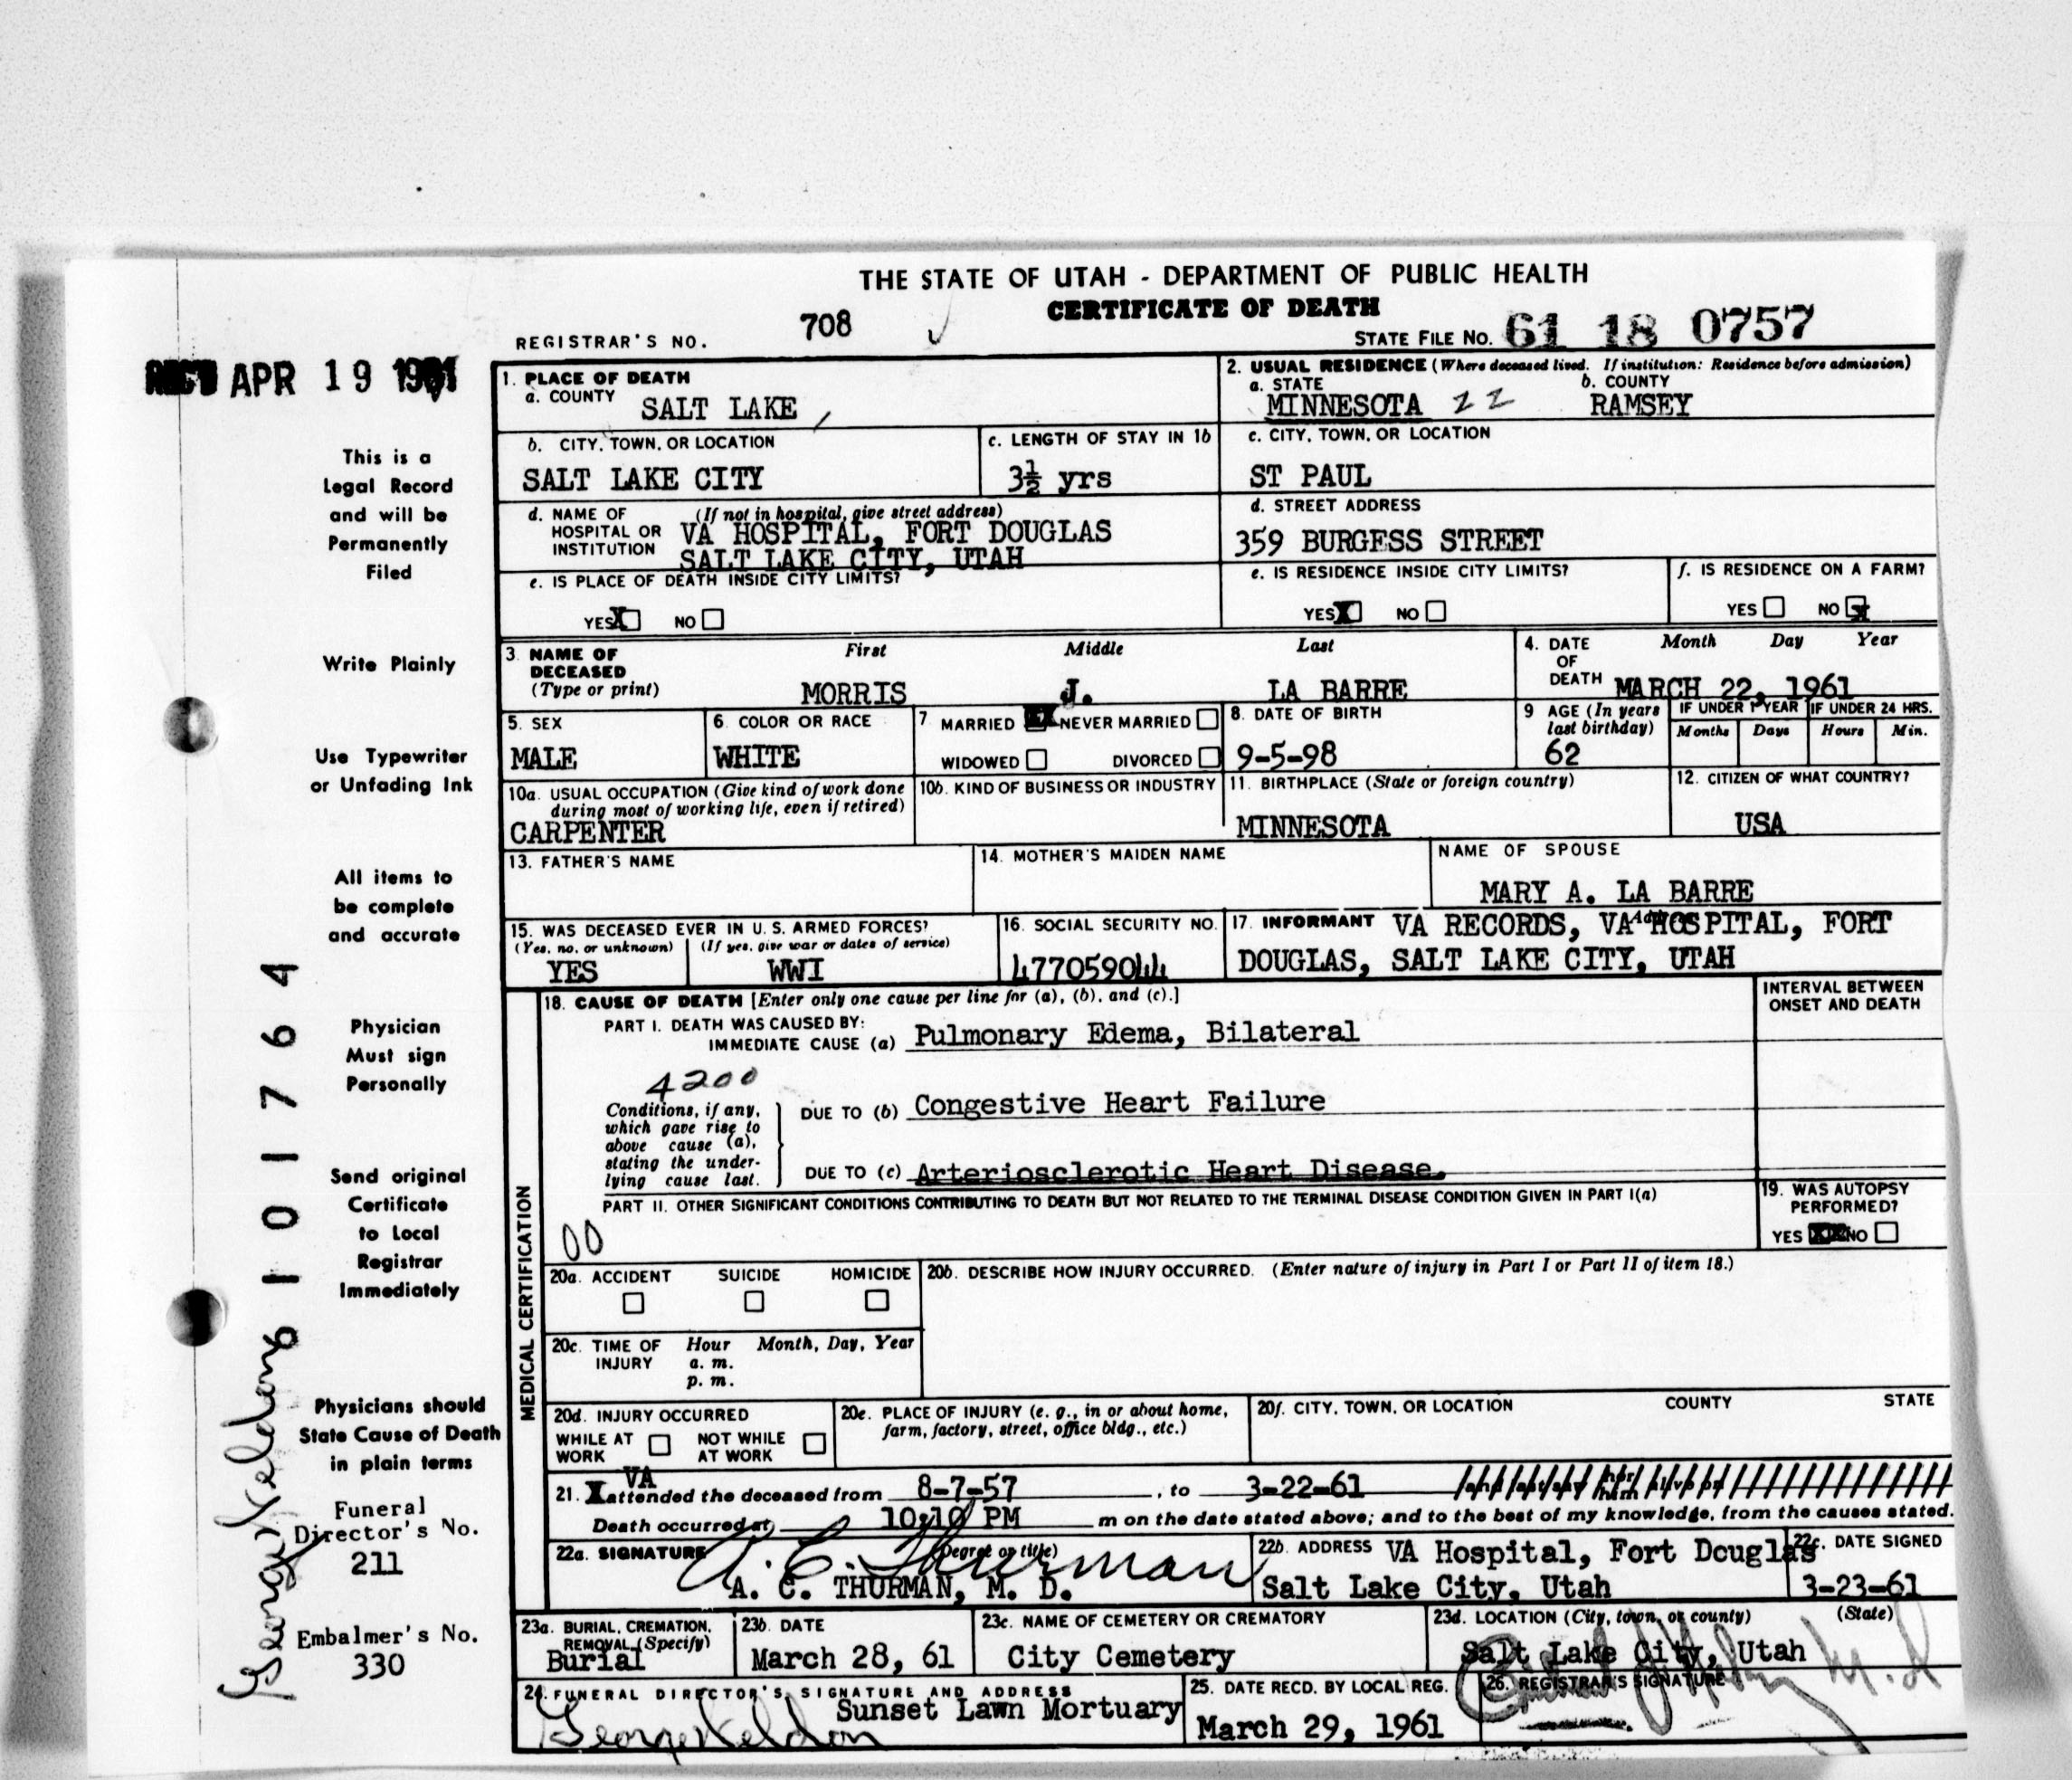 THE STATE OF UTAH - DEPARTMENT OF PUBLIC HEALTH
CERTIFICATE OF DEATH
REGISTRAR'S NO. 708
STATE FILE NO. 61 18 0757
REC'D APR 19 1961
This is a
Legal Record
and will be
Permanently
Filed
Write Plainly
Use Typewriter
or Unfading Ink
All items to
be complete
and accurate
Physician
Must sign
Personally
Send original
Certificate
to Local
Registrar
Immediately
Physicians should
State Cause of Death
in plain terms
Funeral
Director's No.
211
Embalmer's No.
330
6101764
George Keldon
1. PLACE OF DEATH
a. COUNTY SALT LAKE
2. USUAL RESIDENCE (Where deceased lived. If institution: Residence before admission)
a. STATE b. COUNTY
MINNESOTA 22 RAMSEY
b. CITY, TOWN, OR LOCATION
SALT LAKE CITY
c. LENGTH OF STAY IN 1b
3½ yrs
c. CITY, TOWN, OR LOCATION
ST PAUL
d. NAME OF HOSPITAL OR INSTITUTION (If not in hospital, give street address)
VA HOSPITAL, FORT DOUGLAS
SALT LAKE CITY, UTAH
d. STREET ADDRESS
359 BURGESS STREET
e. IS PLACE OF DEATH INSIDE CITY LIMITS?
YES X NO
e. IS RESIDENCE INSIDE CITY LIMITS?
YES X NO
f. IS RESIDENCE ON A FARM?
YES NO X
3. NAME OF DECEASED (Type or print)
First Middle Last
MORRIS J. LA BARRE
4. DATE OF DEATH Month Day Year
MARCH 22, 1961
5. SEX
MALE
6. COLOR OR RACE
WHITE
7. MARRIED X NEVER MARRIED
WIDOWED DIVORCED
8. DATE OF BIRTH
9-5-98
9 AGE (In years last birthday)
62
IF UNDER 1 YEAR IF UNDER 24 HRS.
Months Days Hours Min.
10a. USUAL OCCUPATION (Give kind of work done during most of working life, even if retired)
CARPENTER
10b. KIND OF BUSINESS OR INDUSTRY
11. BIRTHPLACE (State or foreign country)
MINNESOTA
12. CITIZEN OF WHAT COUNTRY?
USA
13. FATHER'S NAME
14. MOTHER'S MAIDEN NAME
NAME OF SPOUSE
MARY A. LA BARRE
15. WAS DECEASED EVER IN U. S. ARMED FORCES?
(Yes, no, or unknown) (If yes, give war or dates of service)
YES WWI
16. SOCIAL SECURITY NO.
477059044
17. INFORMANT VA RECORDS, VA HOSPITAL, FORT
DOUGLAS, SALT LAKE CITY, UTAH
MEDICAL CERTIFICATION
18. CAUSE OF DEATH [Enter only one cause per line for (a), (b), and (c).]
INTERVAL BETWEEN ONSET AND DEATH
PART I. DEATH WAS CAUSED BY:
IMMEDIATE CAUSE (a) Pulmonary Edema, Bilateral
4200
Conditions, if any, which gave rise to above cause (a), stating the underlying cause last.
DUE TO (b) Congestive Heart Failure
DUE TO (c) Arteriosclerotic Heart Disease.
PART II. OTHER SIGNIFICANT CONDITIONS CONTRIBUTING TO DEATH BUT NOT RELATED TO THE TERMINAL DISEASE CONDITION GIVEN IN PART I(a)
00
19. WAS AUTOPSY PERFORMED?
YES XX NO
20a. ACCIDENT SUICIDE HOMICIDE
20b. DESCRIBE HOW INJURY OCCURRED. (Enter nature of injury in Part I or Part II of item 18.)
20c. TIME OF INJURY Hour Month, Day, Year
a. m.
p. m.
20d. INJURY OCCURRED
WHILE AT WORK NOT WHILE AT WORK
20e. PLACE OF INJURY (e. g., in or about home, farm, factory, street, office bldg., etc.)
20f. CITY, TOWN, OR LOCATION COUNTY STATE
VA
21. X attended the deceased from 8-7-57, to 3-22-61
Death occurred at 10:10 PM m on the date stated above; and to the best of my knowledge, from the causes stated.
22a. SIGNATURE (Degree or title)
A. C. Thurman
A. C. THURMAN, M. D.
22b. ADDRESS VA Hospital, Fort Douglas
Salt Lake City, Utah
22c. DATE SIGNED
3-23-61
23a. BURIAL, CREMATION, REMOVAL (Specify)
Burial
23b. DATE
March 28, 61
23c. NAME OF CEMETERY OR CREMATORY
City Cemetery
23d. LOCATION (City, town, or county) (State)
Salt Lake City, Utah
24. FUNERAL DIRECTOR'S SIGNATURE AND ADDRESS
Sunset Lawn Mortuary
George Keldon
25. DATE RECD. BY LOCAL REG.
March 29, 1961
26. REGISTRAR'S SIGNATURE